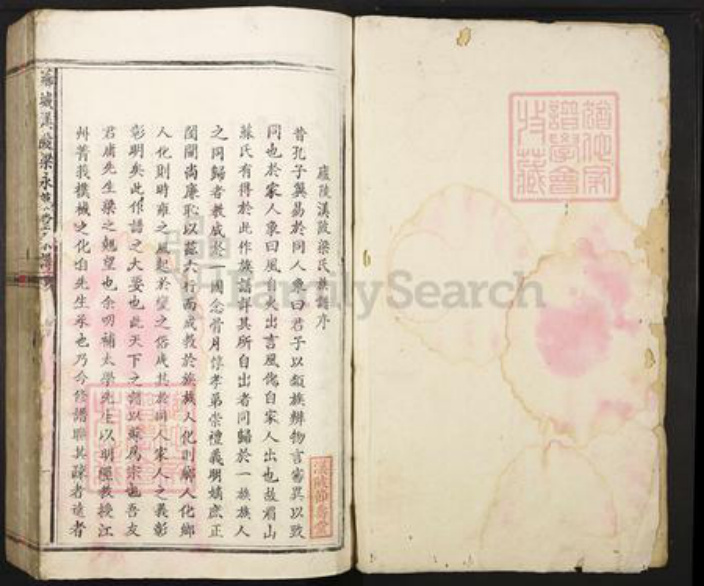 廬陵漢陂梁氏族譜序
昔孔子翼易於同人象曰君子以類族辨物言審異以致
同也於家人象曰風自火出言風化自家人出也故眉山
蘇氏有得於此作族譜詳其所自出者同歸於一族族人
之同歸者教成於一國念骨月惇孝弟崇禮義明嫡庶正
閨閫尚廉恥以茲六行而成教於族族人化則鄉人化鄉
人化則時雍之風起於變之俗成其於同人家人之義彰
彰明矣此作譜之大要也此天下之譜以蘇為宗也吾友
君庸先生梁之翹望也余叨補太學先生以明經教授江
州菁莪棫樸之化自先生承也乃今修譜聯其疎者遠者
漢陂節壽堂
FamilySearch